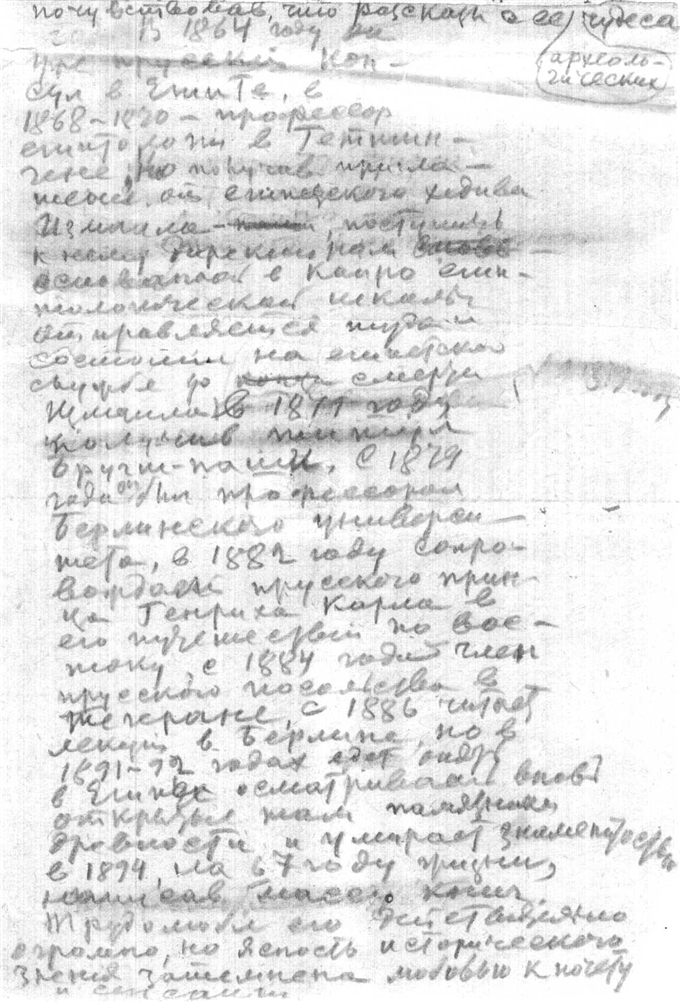 почувствовав, что рассказы о ее чудеса
археоло-
гических
В 1864 году он
уже прусский кон-
сул в Египте, в
1868-1870 - профессор
египтологии в Геттин-
гене, но получив пригла-
шение от египетского хедива
Измаила поступить
к нему директором
основанной в Каиро егип-
тологической школы
отправляется туда и
состоит на египетской
службе до смерти
Измаила. В 1877 году
получив титул
Бругш-паши. С 1879
года он был профессором
Берлинского универси-
тета, в 1882 году сопро-
вождал прусского прин-
ца Генриха Карла в
его путешествии по Вос-
току, с 1884 года член
прусского посольства в
Тегеране, с 1886 читает
лекции в Берлине, но в
1891-92 годах едет опять
в Египет осматривать вновь
открытые там памятники
древности и умирает знаменитостью
в 1894, на 67 году жизни,
написав массу книг.
Трудолюбие его действительно
огромно, но ясность исторического
зрения затемнена любовью к почету
и сенсации